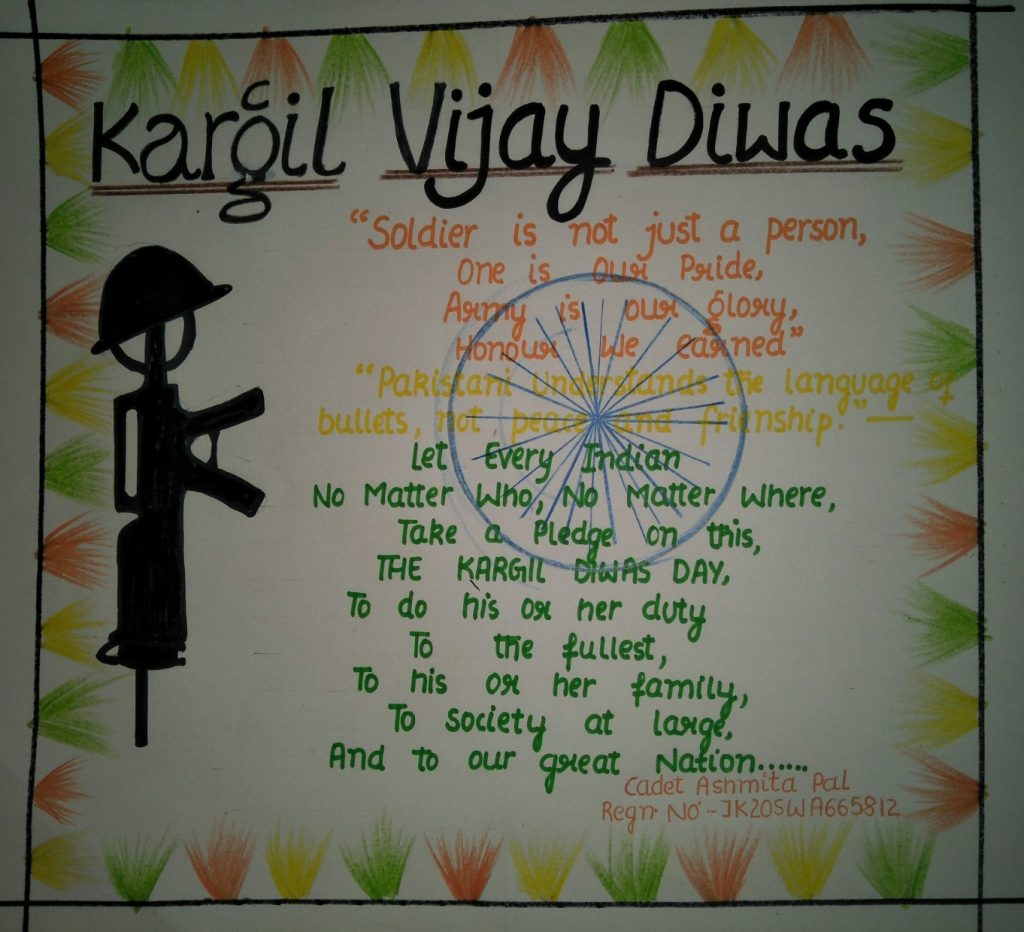 Kargil Vijay Diwas
"Soldier is not just a person,
One is Our Pride,
Army is our glory,
Honour We earned"
"Pakistani Understands the language of
bullets, not peace and frienship!"—
Let Every Indian
No Matter Who, No Matter Where,
Take a Pledge on this,
THE KARGIL DIWAS DAY,
To do his or her duty
To the fullest,
To his or her family,
To Society at large,
And to our great Nation......
Cadet Ashmita Pal
Regn No - JK20SWA665812